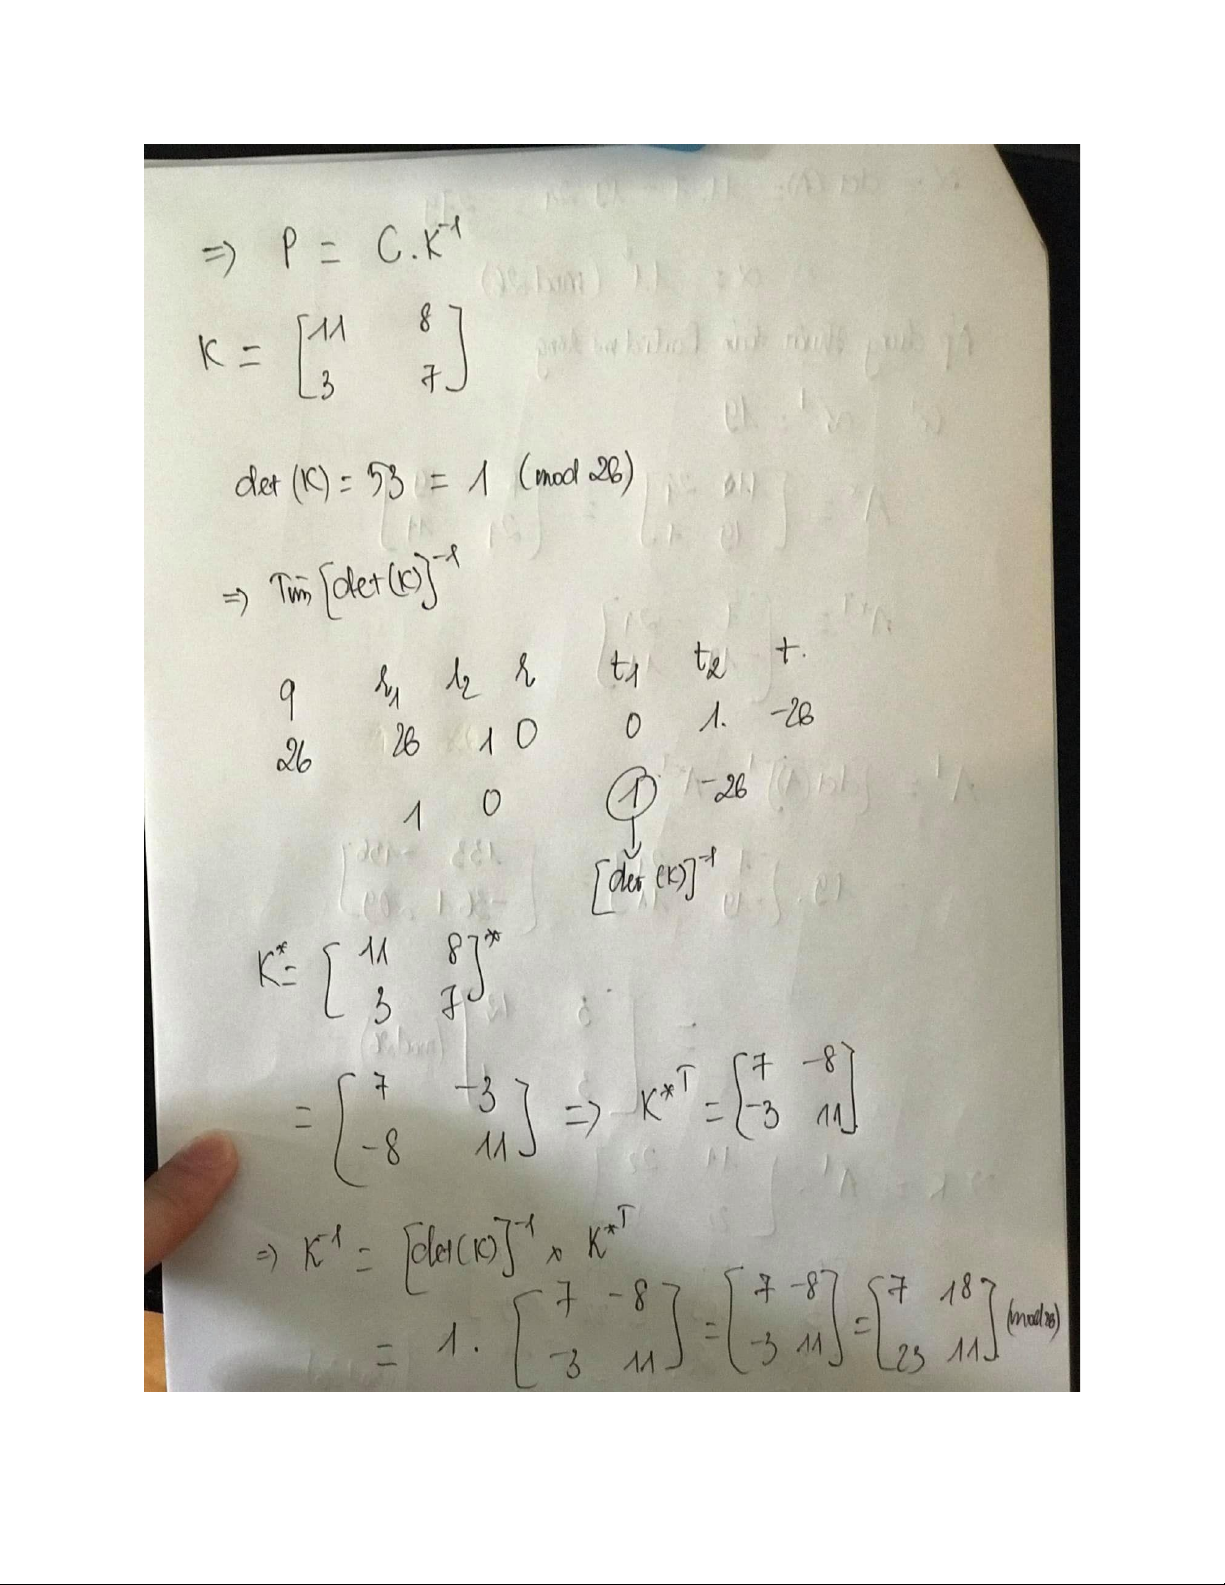 => P = C.K^-1
K = [11 8
3 7]
det (K) = 53 = 1 (mod 26)
=> Tìm [det(K)]^-1
q r1 r2 r t1 t2 t.
26 26 1 0 0 1. -26
1 0 1 -26
[det (K)]^-1
K* = [11 8
3 7]*
= [7 -3
-8 11] => K*T = [7 -8
-3 11]
=> K^-1 = [det(K)]^-1 x K*T
= 1. [7 -8
-3 11] = [7 -8
-3 11] = [7 18
23 11] (mod 26)